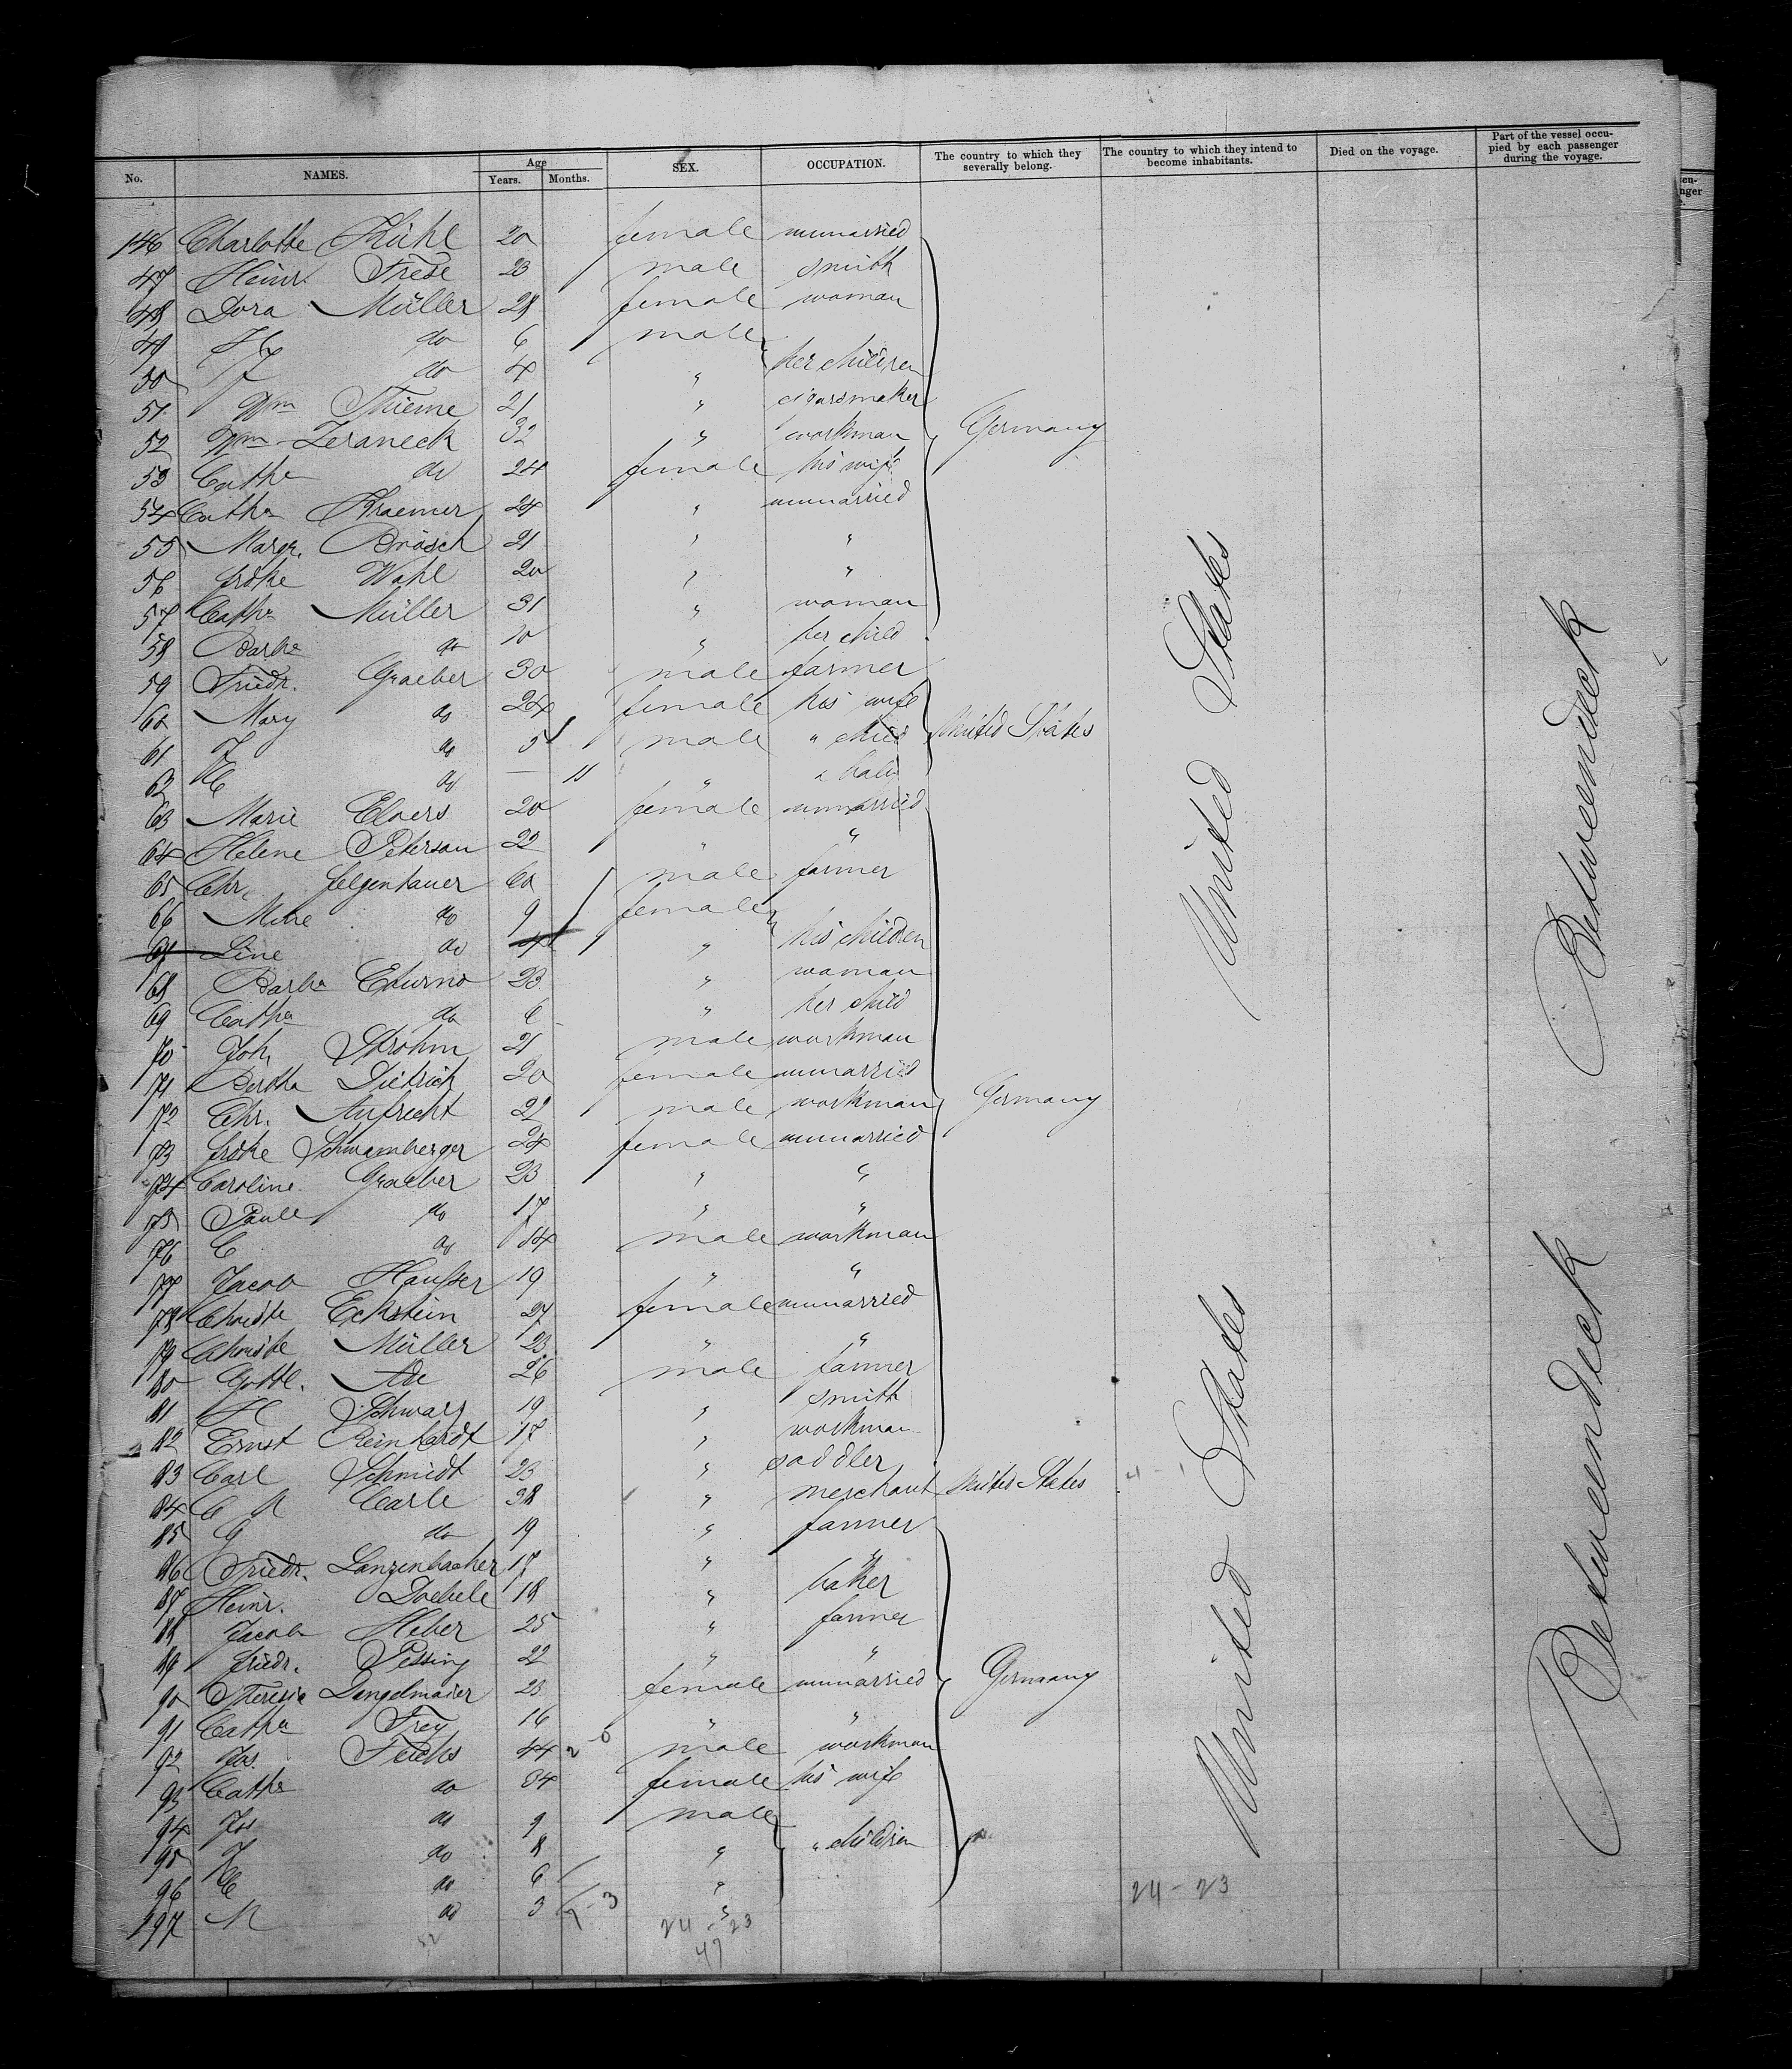 No. NAMES. Age Years. Months. SEX. OCCUPATION. The country to which they severally belong. The country to which they intend to become inhabitants. Died on the voyage. Part of the vessel occupied by each passenger during the voyage.
146 Charlotte Kühl 20 female unmarried
47 Heinr. Frese 23 male smith
48 Dora Müller 28 female woman
49 H do 6 male
50 F do 4 " her children
51 Wm Thieme 21 " cigarsmaker
52 Wm Zeraneck 32 " workman Germany
53 Cathe do 24 female his wife
54 Catha Kraemer 24 " unmarried
55 Margr. Brösch 21 " "
56 Frdke Wahl 20 " "
57 Catha Müller 31 " woman
58 Barba do 10 " her child
59 Friedr. Graeber 30 male farmer
60 Mary do 24 female his wife
61 F do 5 male " child United States
62 H do — 11 " " baby
63 Marie Elvers 20 female unmarried
64 Helene Peterson 22 " "
65 Chr. Felgenhauer 60 male farmer
66 Mine do 9 female
67 Line do 4 " his children
68 Barba 23 " woman
69 Catha do 6 " her child
70 Joh. Strohm 21 male workman
71 Bertha Dietrich 20 female unmarried
72 Chr. Aufrecht 22 male workman Germany
73 Frdke Schwamberger 24 female unmarried
74 Caroline Graeber 23 " "
75 Paule do 17 " "
76 C do 14 male workman
77 Jacob Hausser 19 " "
78 Christe Eckstein 27 female unmarried
79 Christe Müller 23 " "
80 Gottl. Ade 26 male farmer
81 H Schwarz 19 " smith
82 Ernst Reinhardt 17 " workman
83 Carl Schmidt 23 " saddler
84 C A Carle 38 " merchant United States
85 G do 19 " farmer
86 Friedr. Lanzenbacher 17 " "
87 Heinr. Doebele 18 " baker
88 Jacob Heber 25 " farmer
89 Friedr. Pessing 22 " "
90 Theresia Dangelmaier 23 female unmarried Germany
91 Catha Frey 16 " "
92 Jos. Fuchs 44 male workman
93 Catha do 34 female his wife
94 Jos do 9 male
95 J do 8 " " children
96 C do 6 "
197 M do 3 "
24 - 23
47
52
24 - 23
United States
United States
Betweendeck
Betweendeck